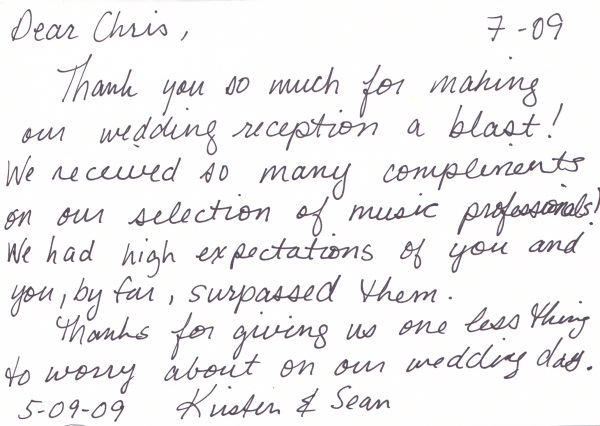 Dear Chris, 7-09
Thank you so much for making
our wedding reception a blast!
We received so many compliments
on our selection of music professionals!
We had high expectations of you and
you, by far, surpassed them.
Thanks for giving us one less thing
to worry about on our wedding day.
5-09-09 Kirsten & Sean